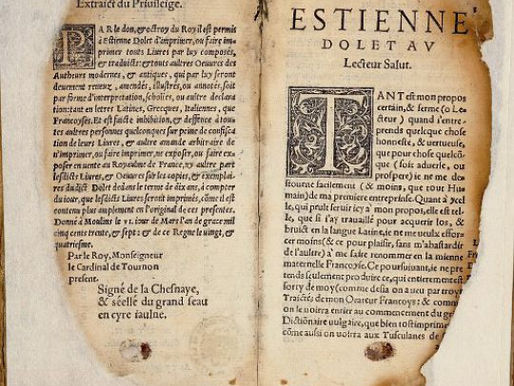 Extraict du Priuileige.
PAR le don, & octroy du Roy il est permis
à Estienne Dolet d'imprimer, ou faire im-
primer touts Liures par luy composés,
& traduicts: & touts autres Oeuures des
Autheurs modernes, & antiques, qui par luy seront
deuement reueuz, amendés, illustrés, ou annotés, soit
par forme d'interpretation, scholies, ou autre declara
tion: tant en letres Latines, Grecques, Italienes, que
Francoyses. Et est faicte inhibition, & deffence à touts
tes autres personnes quelconques sur peine de confisca
tion de leurs Liures, & autre amande arbitraire de
n'imprimer, ou faire imprimer, ne exposer, ou faire ex
poser en uente au Royaulme de France, ny autre part
lesdicts Liures, & Oeuures sur les copies, & exemplai-
res dudict Dolet dedans le terme de dix ans, à compter
du iour, que lesdicts Liures seront imprimés, cōme il est
contenu plus amplement en l'original de ces presentes.
Donné à Moulins le vi. iour de Mars l'an de grace mil
cinq cents trente, & sept: & de ce Regne le uingt, &
quatriesme.
Par le Roy, Monseigneur
le Cardinal de Tournon
present.
Signé de la Chesnaye,
& séellé du grand seau
en cyre iaulne.
ESTIENNE
DOLET AV
Lecteur Salut.
TANT est mon propos
certain, & ferme (o Le-
cteur) quand i'entre-
prends quelcque chose
honneste, & uertueuse,
que pour chose quelcō-
que (soit aduerse, ou
prospere) ie ne me des
tourne facilement (& moins, que tout Hu
main) de ma premiere entreprise. Quant à
le, qui peult seruir icy à mon propos, elle est tel-
le, que si i'ay trauaillé pour acquerir los, &
bruict en la langue Latine, ie ne me ueulx effor-
cer moins (& ce pour plaisir, sans m'abastardir
de l'aultre) à me faire renommer en la mienne
maternelle Francoyse. Ce poursuiuant, ie ne pre
tends seulement produire ce, qui entierement est
sorty de moy (comme desia on a ueu par troys
Traictés de mon Orateur Francoys: & comme
on le uoirra entier au commencement du grand
Dictionaire uulgaire, que bien tost imprimeray)
cōme aussi on uoirra aux Tusculanes de